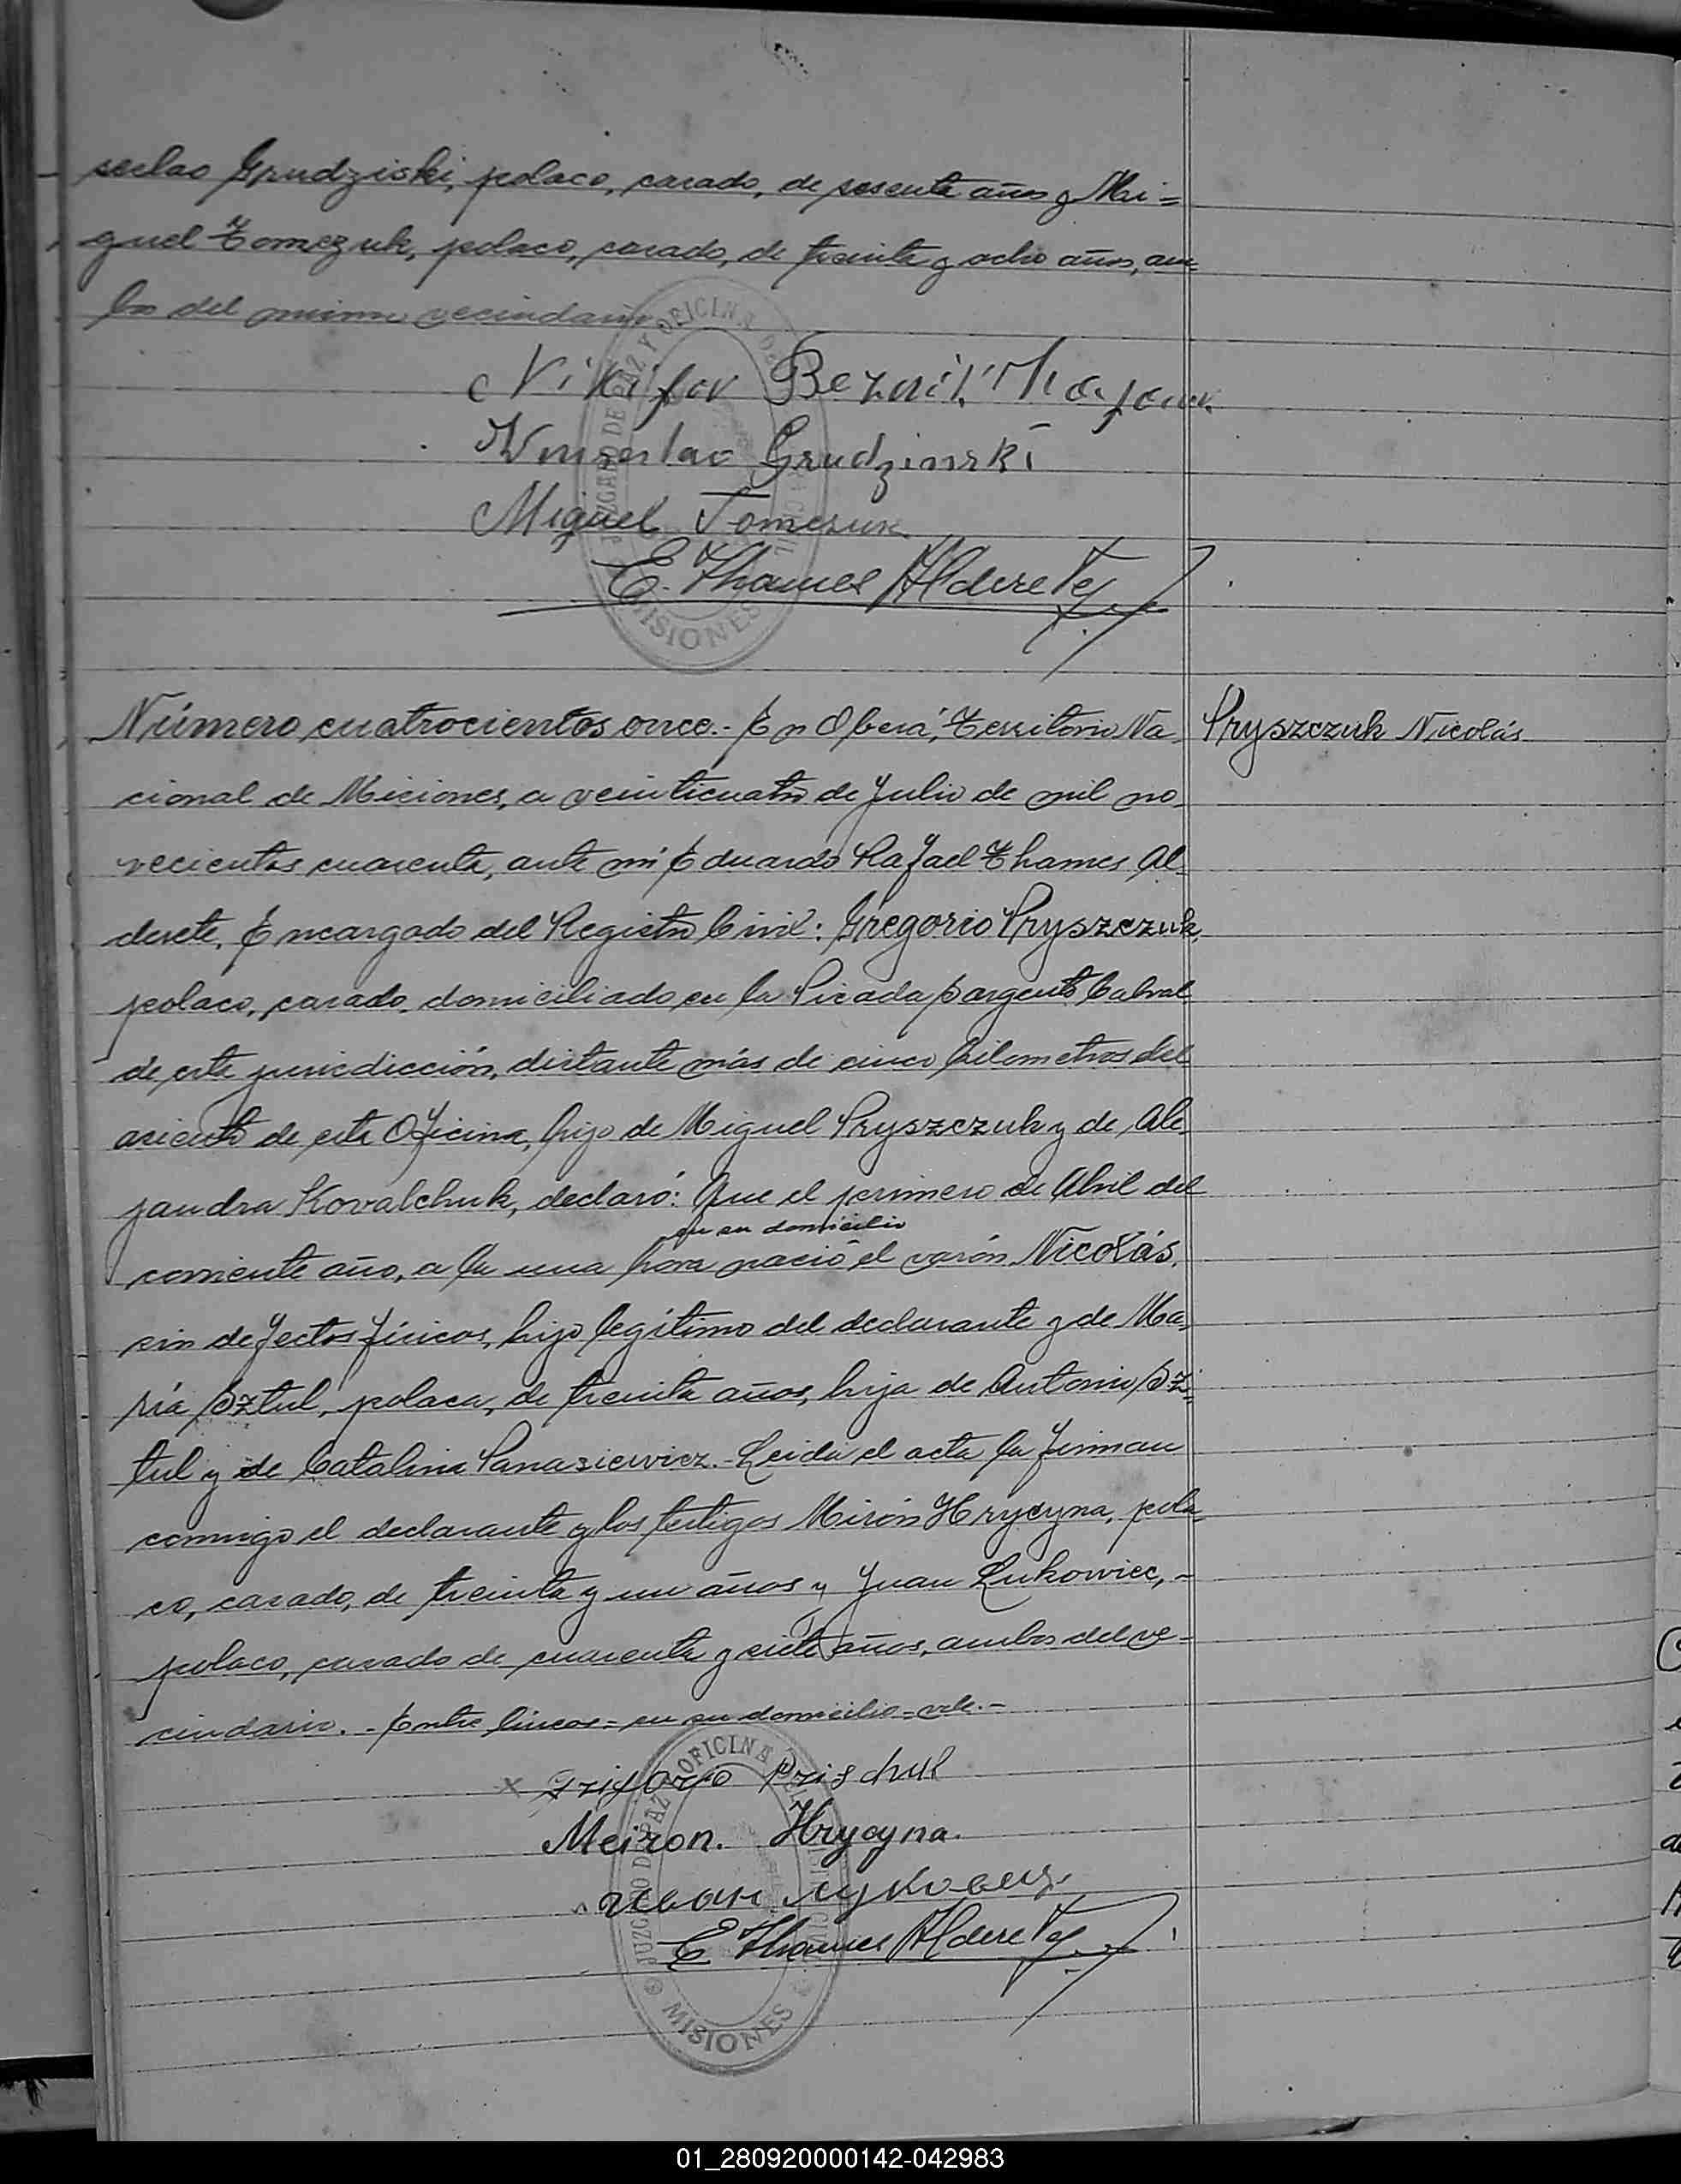 seslao Grudziski, polaco, casado, de sesenta años y Mi=
guel Tomczuk, polaco, casado, de treinta y ocho años, am-
bos del mismo vecindario
Nikifor
Wenseslao Grudzinski
Miguel Tomczuk
E. Thames Alderete
JUZGADO DE PAZ Y OFICINA
MISIONES
Número cuatrocientos once.- En Oberá, Territorio Na-
Pryszczuk Nicolás
cional de Miciones, a veinticuatro de Julio de mil no-
vecientos cuarenta, ante mí Eduardo Rafael Thames Al-
derete, Encargado del Registro Civil: Gregorio Pryszczuk,
polaco, casado, domiciliado en la Picada Sargento Cabral
de esta jurisdicción, distante más de cinco kilometros del
asiento de esta Oficina, hijo de Miguel Pryszczuk y de Ale-
jandra Kovalchuk, declaró: Que el primero de Abril del
en su domicilio
corriente año, a la una hora nació el varón Nicolás,
sin defectos físicos, hijo legítimo del declarante y de Ma-
ría Sztul, polaca, de treinta años, hija de Antonio Sz-
tul y de Catalina Panasiewicz.- Leida el acta la firman
conmigo el declarante y los testigos Mirón Hrycyna, pola-
co, casado, de treinta y un años y Juan Lukowiec,-
polaco, casado de cuarenta y siete años, ambos del ve=
cindario.- Entre lineas= en su domicilio=vale.-
x Prischuk
Meiron. Hrycyna.
Иван Луковець
E Thames Alderete
JUZGADO DE PAZ OFICINA
MISIONES
01_280920000142-042983